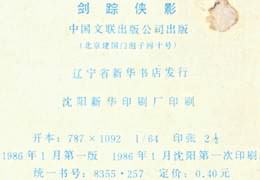 剑踪侠影
中国文联出版公司出版
(北京建国门泡子河十号)
辽宁省新华书店发行
沈阳新华印刷厂印刷
开本:787×1092 1/64 印张 2½
1986年1月第一版 1986年1月沈阳第一次印刷
统一书号:8355·257 定价:0.40元